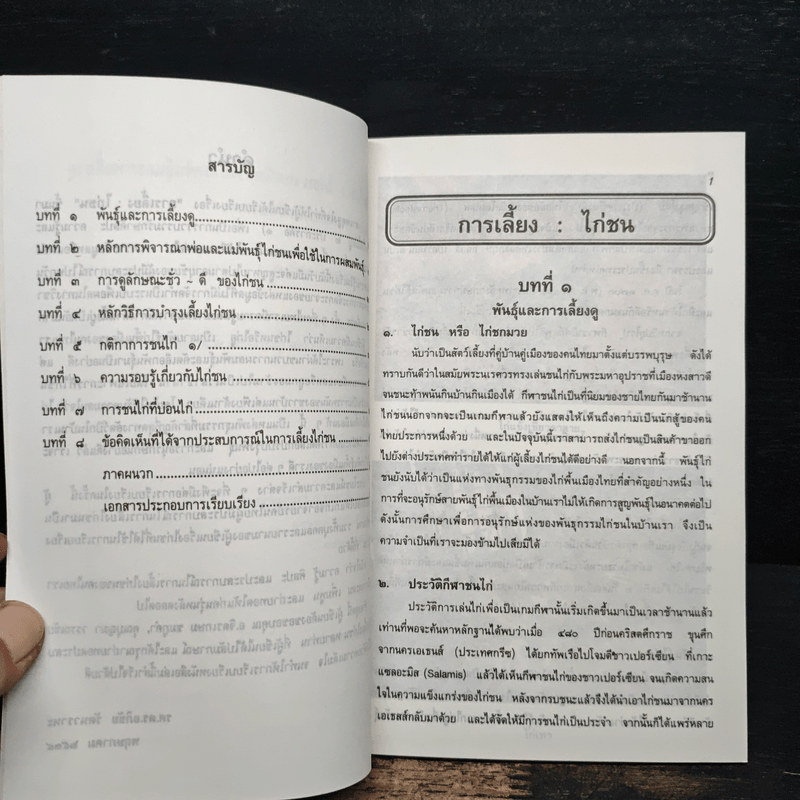 สารบัญ
บทที่ ๑ พันธุ์และการเลี้ยงดู
บทที่ ๒ หลักการพิจารณาพ่อและแม่พันธุ์ไก่ชนเพื่อใช้ในการผสมพันธุ์
บทที่ ๓ การดูลักษณะชั่ว ~ ดี ของไก่ชน
บทที่ ๔ หลักวิธีการบำรุงเลี้ยงไก่ชน
บทที่ ๕ กติกาการชนไก่ ๑/
บทที่ ๖ ความรอบรู้เกี่ยวกับไก่ชน
บทที่ ๗ การชนไก่ที่บ่อนไก่
บทที่ ๘ ข้อคิดเห็นที่ได้จากประสบการณ์ในการเลี้ยงไก่ชน
ภาคผนวก
เอกสารประกอบการเรียบเรียง
1
การเลี้ยง : ไก่ชน
บทที่ ๑
พันธุ์และการเลี้ยงดู
๑. ไก่ชน หรือ ไก่ชกมวย
นับว่าเป็นสัตว์เลี้ยงที่คู่บ้านคู่เมืองของคนไทยมาตั้งแต่บรรพบุรุษ ดังได้
ทราบกันดีว่าในสมัยพระนเรศวรทรงเล่นชนไก่กับพระมหาอุปราชที่เมืองหงสาวดี
จนชนะท้าพนันกินบ้านกินเมืองได้ กีฬาชนไก่เป็นที่นิยมของชายไทยกันมาช้านาน
ไก่ชนนอกจากจะเป็นเกมกีฬาแล้วยังแสดงให้เห็นถึงความเป็นนักสู้ของคน
ไทยประการหนึ่งด้วย และในปัจจุบันนี้เราสามารถส่งไก่ชนเป็นสินค้าขาออก
ไปยังต่างประเทศทำรายได้ให้แก่ผู้เลี้ยงไก่ชนได้ดีอย่างดี นอกจากนี้ พันธุ์ไก่
ชนยังนับได้ว่าเป็นแห่งทางพันธุกรรมของไก่พื้นเมืองไทยที่สำคัญอย่างหนึ่ง ใน
การที่จะอนุรักษ์สายพันธุ์ไก่พื้นเมืองในบ้านเราไม่ให้เกิดการสูญพันธุ์ในอนาคตต่อไป
ดังนั้นการศึกษาเพื่อการอนุรักษ์แห่งของพันธุกรรมไก่ชนในบ้านเรา จึงเป็น
ความจำเป็นที่เราจะมองข้ามไปเสียมิได้
๒. ประวัติกีฬาชนไก่
ประวัติการเล่นไก่เพื่อเป็นเกมกีฬานั้นเริ่มเกิดขึ้นมาเป็นเวลาช้านานแล้ว
เท่านที่พอจะค้นหาหลักฐานได้พบว่าเมื่อ ๔๘๐ ปีก่อนคริสตศักราช ขุนศึก
จากนครเอเธนส์ (ประเทศกรีซ) ได้ยกทัพเรือไปโจมตีชาวเปอร์เซียน ที่เกาะ
แซลอะมิส (Salamis) แล้วได้เห็นกีฬาชนไก่ของชาวเปอร์เซียน จนเกิดความสน
ใจในความแข็งแกร่งของไก่ชน หลังจากรบชนะแล้วจึงได้นำเอาไก่ชนมาจากนคร
เอเธสส์กลับมาด้วย และได้จัดให้มีการชนไก่เป็นประจำ จากนั้นก็ได้แพร่หลาย